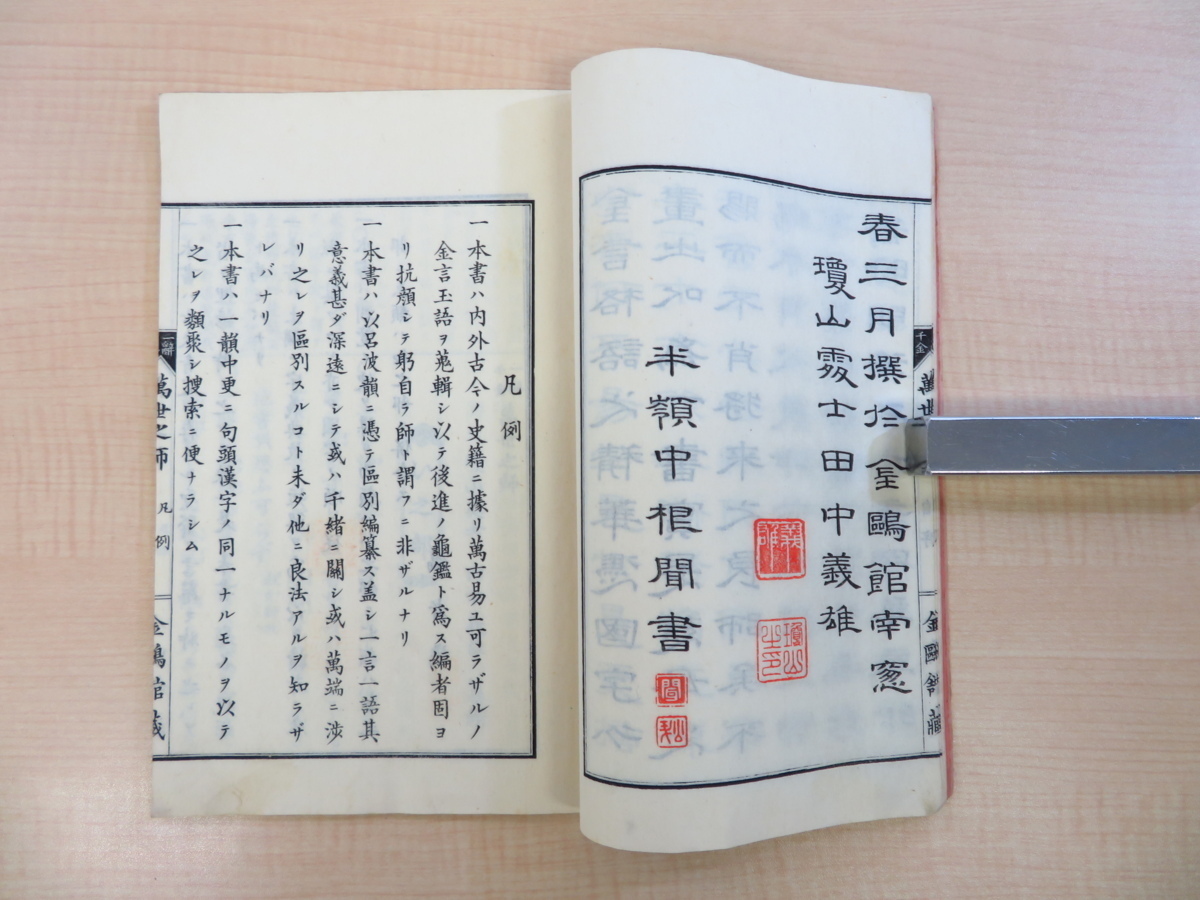 春三月撰於金鷗館南窓
瓊山處士田中義雄
半嶺中根聞書
義雄
瓊山
凡例
一本書ハ内外古今ノ史籍ニ據リ萬古易ユ可ラザルノ
金言玉語ヲ蒐輯シ以テ後進ノ龜鑑ト爲ス編者固ヨ
リ抗顏シテ躬自ラ師ト謂フニ非ザルナリ
一本書ハ以呂波韻ニ憑テ區別編纂ス盖シ一言一語其
意義甚ダ深遠ニシテ或ハ千緒ニ關シ或ハ萬端ニ涉
リ之レヲ區別スルコト未ダ他ニ良法アルヲ知ラザ
レバナリ
一本書ハ一韻中更ニ句頭漢字ノ同一ナルモノヲ以テ
之レヲ類聚シ搜索ニ便ナラシム
萬世之師 凡例 金鷗館藏